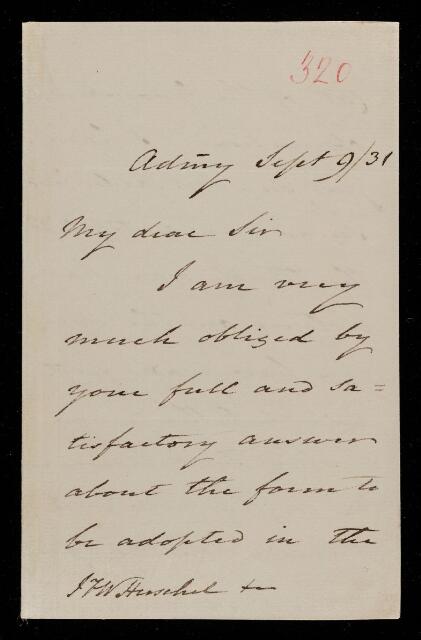 320
Admy Sept 9/31
My dear Sir
I am very
much obliged by
your full and sa=
tisfactory answer
about the form to
be adopted in the
J F W Herschel &c